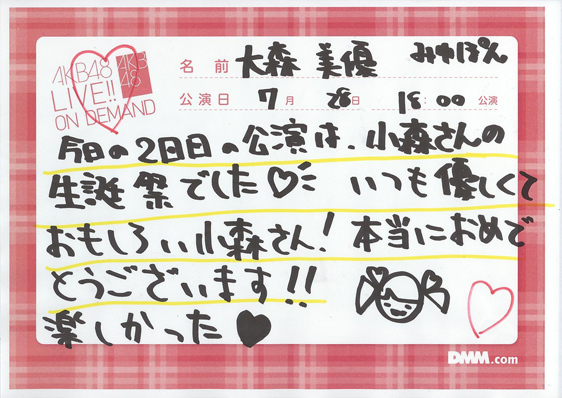 AKB48
LIVE!!
ON DEMAND
AKB
48
名前 大森美優 みゆぽん
公演日 7月 28日 18:00 公演
今日の2日目の公演は、小森さんの
生誕祭でした♡ いつも優しくて
おもしろい小森さん!本当におめで
とうございます!!
楽しかった♥
DMM.com